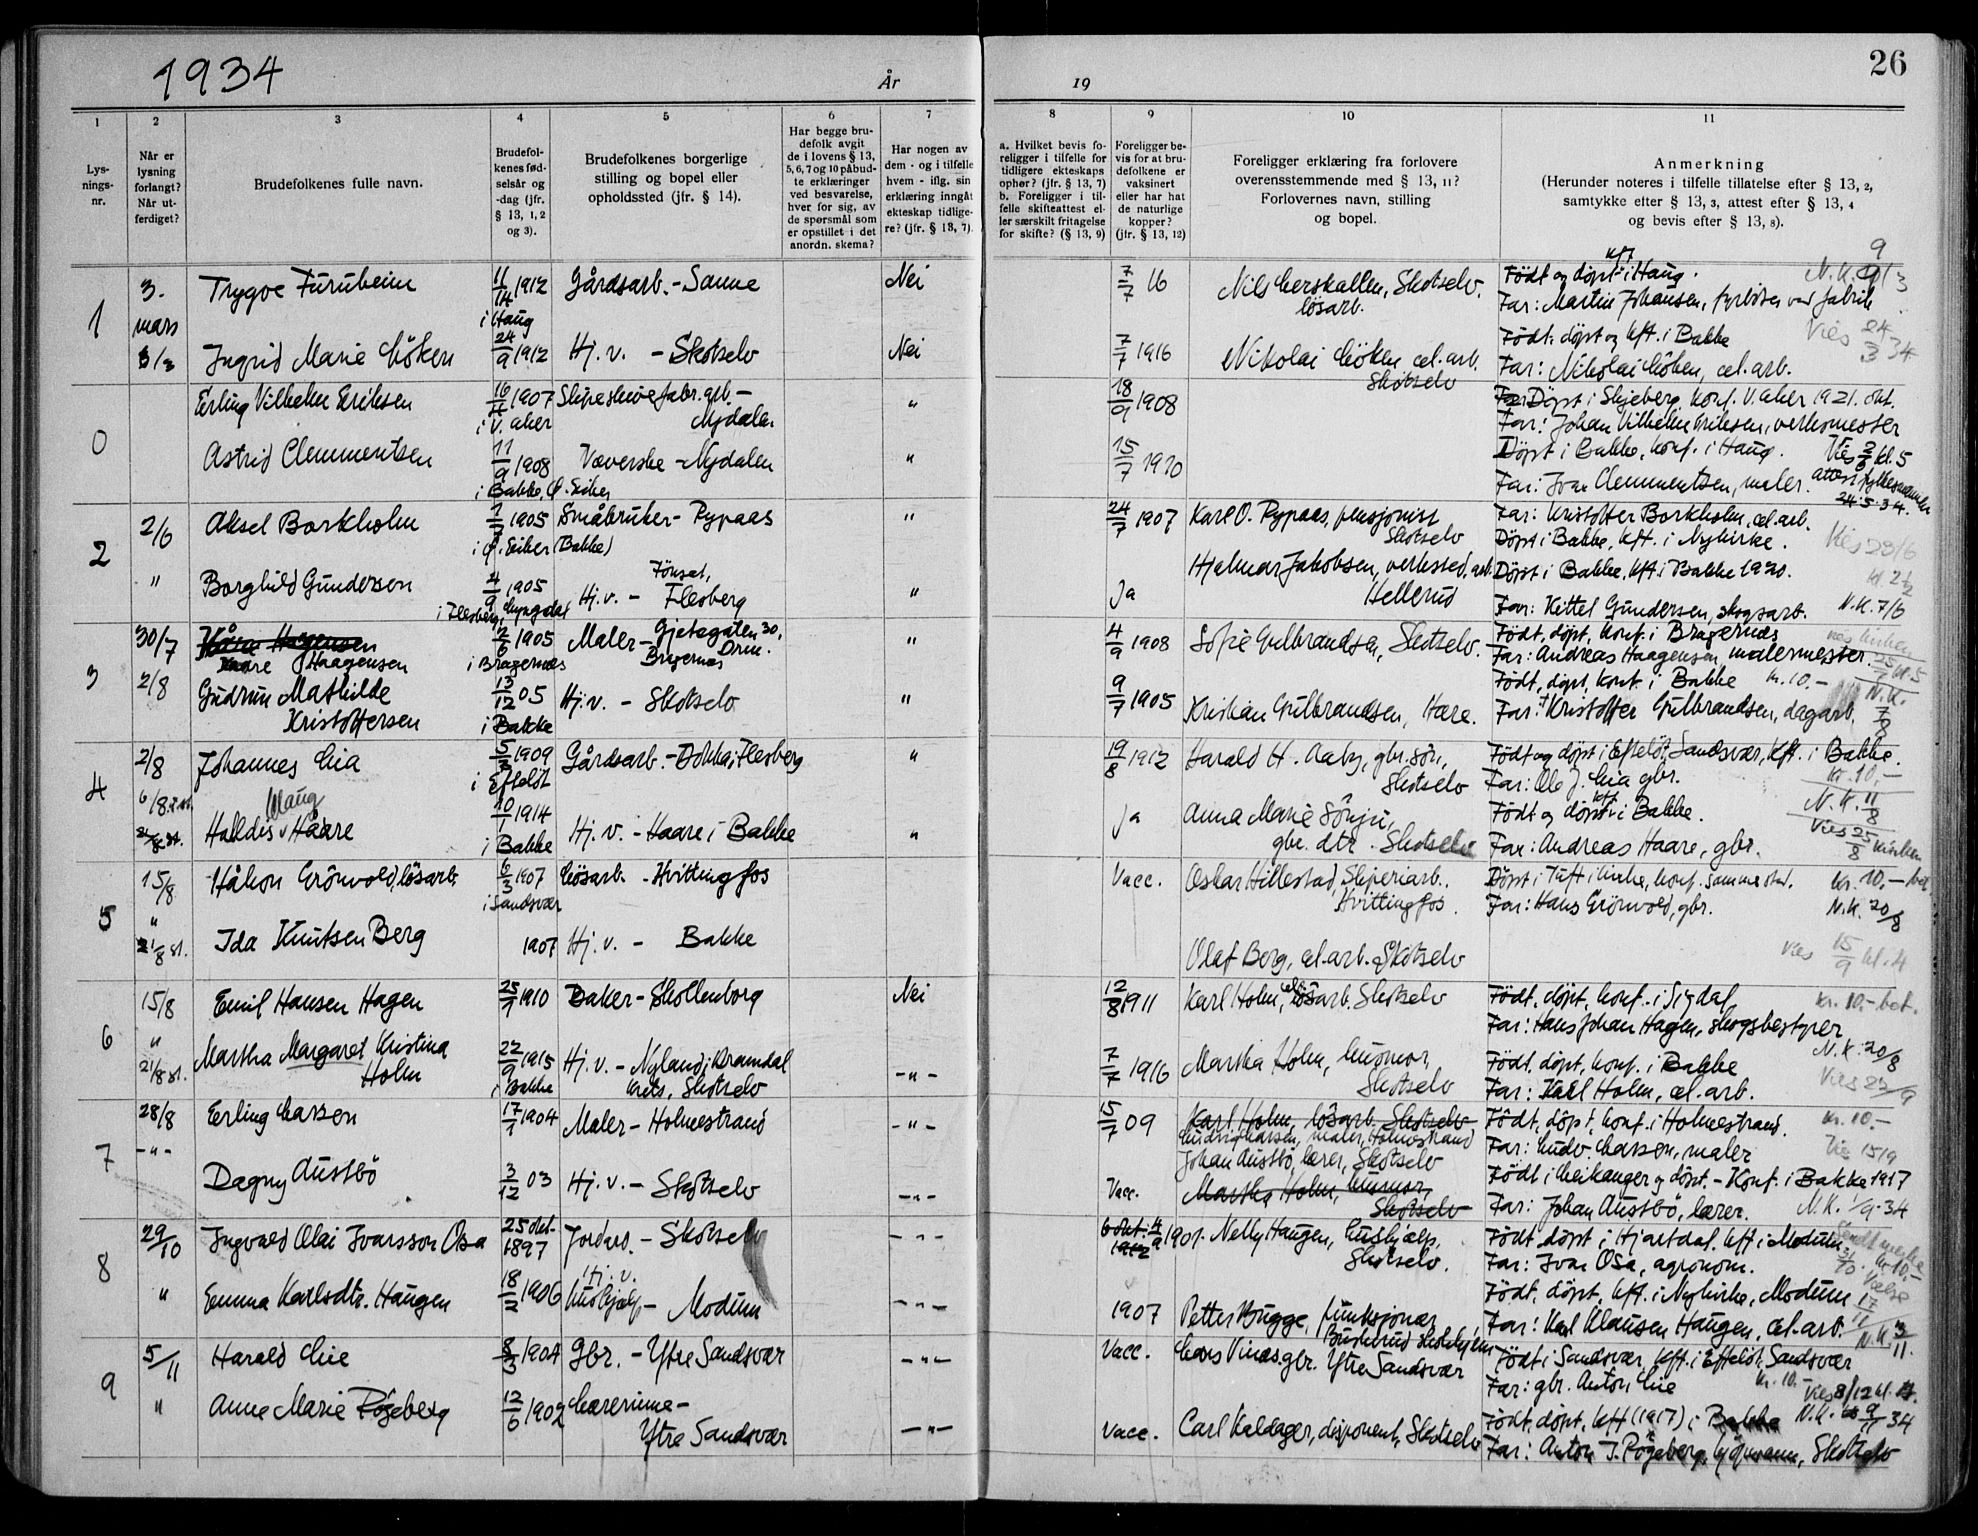 1934
År
19
26
1
2
3
4
5
6
7
8
9
10
11
Lys-
nings-
nr.
Når er
lysning
forlangt?
Når ut-
ferdiget?
Brudefolkenes fulle navn.
Brudefol-
kenes fød-
selsår og
-dag (jfr.
§ 13, 1, 2
og 3).
Brudefolkenes borgerlige
stilling og bopel eller
opholdssted (jfr. § 14).
Har begge bru-
defolk avgit
de i lovens § 13,
5, 6, 7 og 10 påbud-
te erklæringer
ved besvarelse,
hver for sig, av
de spørsmål som
er opstillet i det
anordn. skema?
Har nogen av
dem - og i tilfelle
hvem - iflg. sin
erklæring inngått
ekteskap tidlige-
re? (jfr. § 13, 7).
a. Hvilket bevis fo-
religger i tilfelle for
tidligere ekteskaps
ophør? (jfr. § 13, 7)
b. Foreligger i til-
felle skifteattest el-
ler særskilt fritagelse
for skifte? (§ 13, 9)
Foreligger be-
vis for at bru-
defolkene er
vaksinert
eller har hat
de naturlige
kopper?
(jfr. § 13, 12)
Foreligger erklæring fra forlovere
overensstemmende med § 13, 11?
Forlovernes navn, stilling
og bopel.
Anmerkning
(Herunder noteres i tilfelle tillatelse efter § 13, 2,
samtykke efter § 13, 3, attest efter § 13, 4
og bevis efter § 13, 8).
1
3. mars
Trygve Furuheim
11/14 1912
i Haug
Gårdsarb. - Sanne
Nei
7/7 16
Nils Cerskallen, Skotselv.
lösarb.
Født og döpt kft i Haug.
Far: Martin Johansen, fyrböter ved fabrik
3/3
Ingrid Marie Cöken
24/9 1912
Hj. v. - Skotselv
Nei
7/7 1916
Nikolai Cöken cel. arb.
Skotselv
Født, döpt og kft. i Bakke
Vies 24/3 34
Far: Nikolai Cöken, cel. arb.
0
Erling Vilhelm Eriksen
1907
i V. aker
Slipeskive fabr. arb. -
Nydalen
"
18/9 1908
Döpt i Skjeberg, konf. V. aker 1921. okt.
Far: Johan Vilhelm Eriksen, verksmester
Astrid Clemmentsen
11/9 1908
i Bakke, Ø. Eiker
Væverske - Nydalen
"
15/7 1910
Döpt i Bakke, konf. i Haug. Vies kl. 5
Far: Ivar Clemmentsen, maler. attest fylkesmannen
24.5.34.
2
2/6
Aksel Borkholm
1905
i Ø. Eiker (Bakke)
Småbruker - Rypaas
"
24/7 1907
Karl O. Rypaas, pensjonist
Skotselv
Far: Kristoffer Borkholm, cel. arb.
Döpt i Bakke, kft. i Nykirke. Vies 23/6
"
Borghild Gundersen
4/9 1905
i Flesberg, Lyngdal
Hj. v. - Fönset, Flesberg
"
Ja
Hjelmar Jakobsen, verksted. arb.
Hellerud
Döpt i Bakke, kft. i Bakke 1920.
Far: Kittel Gundersen, skogsarb. N.K. 7/6
3
30/7
Kåre Haagensen
1905
i Bragernes
Maler - Gjetergaten 30, Drm.
Bragernes
"
4/9 1908
Sofie Gulbrandsen, Skotselv.
Født, döpt, konf. i Bragernes
Far: Andreas Haagensen, malermester.
2/8
Gudrun Mathilde
Kristoffersen
13/12 05
i Bakke
Hj. v. - Skotselv
"
9/7 1905
Kristian Gulbrandsen, Haare.
Født, döpt, konf. i Bakke kr. 10.-
Far: Kristoffer Gulbrandsen, dagarb.
N.K. 7/8
4
2/8
Johannes Lia
5/3 1909
i Efteløt
Gårdsarb. - Dokka i Flesberg
"
19/8 1912
Harald H. Aaby, gbr. sön,
Skotselv
Født og döpt i Efteløt, Sandsvær, Kft. i Bakke.
kr. 10.-
Far: Ole J. Lia gbr.
6/8
Haug
Halldis Haare
10/1 1914
i Bakke
Hj. v. - Haare i Bakke
"
Ja
Anna Marie Sönju,
gbr. dtr. Skotselv
Født og döpt kft i Bakke.
N.K. 11/8
Vies 25/8 kirken
Far: Andreas Haare, gbr.
5
15/8
Håkon Grönvold, lösarb.
6/3 1907
i Sandsvær
Lösarb. - Hvittingfos
Vacc.
Oskar Hillestad, Sliperiarb.,
Hvittingfos.
Döpt i Tuft kirke, konf. samme sted. kr. 10.- bet.
Far: Hans Grönvold, gbr. N.K. 20/8
"
21/8 st.
Ida Knutsen Berg
1907
Hj. v. - Bakke
Olaf Berg, cel. arb. Skotselv
Vies 15/9 kl. 4
6
15/8
Emil Hansen Hagen
25/1 1910
Baker - Skollenborg
Nei
12/8 1911
Karl Holm, cell. lösarb. Skotselv
Født, döpt, konf. i Sigdal, kr. 10.- bet.
Far: Hans Johan Hagen, skogsbestyrer
"
21/8 st.
Martha Margaret Kristina
Holm
22/9 1915
i Bakke
Hj. v. - Nyland i Bramdal
krets, Skotselv
-"-
7/7 1916
Martha Holm, husmor,
Skotselv
N.K. 20/8
Født, döpt, konf. i Bakke
Far: Karl Holm, cel. arb.
Vies 22/9
7
28/8
Erling Larsen
17/1 1904
Maler - Holmestrand
-"-
15/7 09
Karl Holm, lösarb. Skotselv
Ludvig Larsen, maler, Holmestrand
Johan Austbö, lærer, Skotselv
Født, döpt, konf. i Holmestrand. kr. 10.-
Far: Ludv. Larsen, maler
Vies 15/9
-"-
Dagny Austbö
3/12 03
Hj. v. - Skotselv
-"-
Vacc.
Martha Holm, husmor,
Skotselv
Født i Leikanger og döpt. - Konf. i Bakke 1917
Far: Johan Austbö, lærer. N.K. 1/9-34
8
29/10
Ingvald Olai Ivarsson Osa
25 okt.
1897
Jordarb. - Skotselv
-"-
1901.
Nelly Haugen, hushjælp,
Skotselv.
Født, döpt i Hjartdal. kft i Modum
Far: Ivar Osa, agronom. kr. 10,-
"
Emma Karlsdtr. Haugen
18/2 1906
Hj. v.
hushjælp - Modum
-"-
1907
Petter Bugge, funksjonær,
Født, döpt, kft. i Nykirke, Modum
Far: Karl Klausen Haugen, cel. arb. N.K. 3/11.
9
5/11
Harald Lie
8/3 1904
Gbr. - Ytre Sandsvær
-"-
Vacc.
Lars Vinæs gbr. Ytre Sandsvær
Født i Sandsvær, kft. i Efteløt, Sandsvær
Far: gbr. Anton Lie kr. 10.- Vies 8/12
"
Anne Marie Rögeberg
12/6 1902
Lærerinne -
Ytre Sandsvær
-"-
Vacc.
Carl Kaldager, disponent, Skotselv
Født, döpt, kft (1917) i Bakke N.K. 9/11 34
Far: Anton J. Rögeberg, kjöpmann, Skotselv